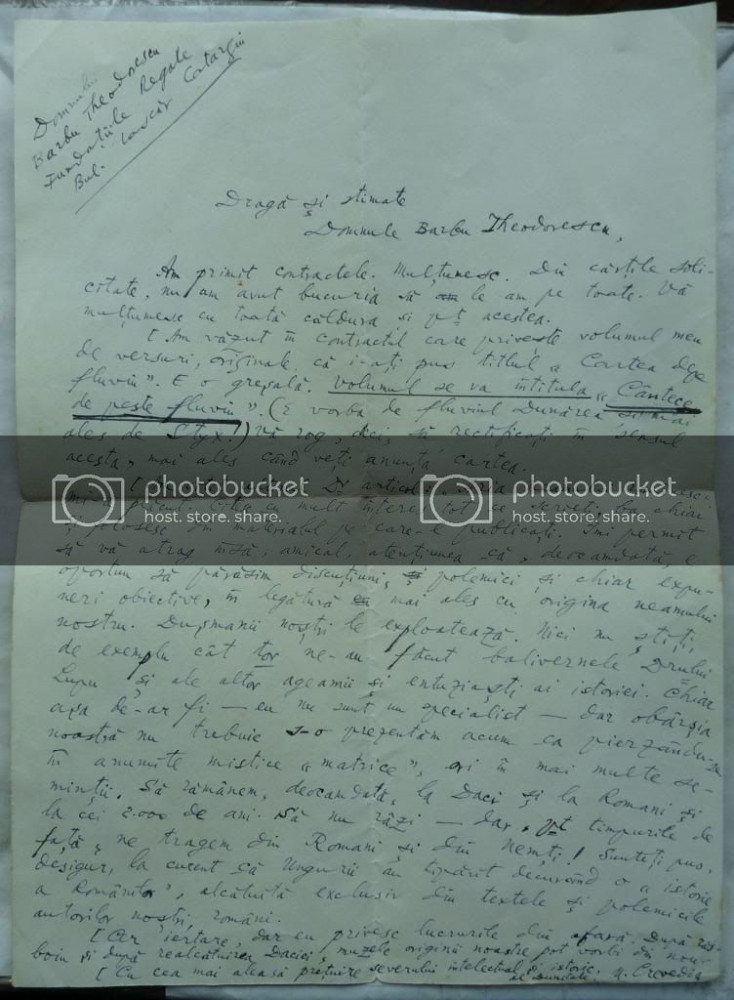 Domnului
Barbu Theodorescu
Fundațiile Regale
Bul. Lascăr Catargiu
Dragă și stimate
Domnule Barbu Theodorescu,
Am primit contractele. Mulțumesc. Din cărțile soli-
citate, nu am avut bucuria să le am pe toate. Vă
mulțumesc cu toată căldura și pt acestea.
[ Am văzut în contractul care privește volumul meu
de versuri, originale, că i-ați pus titlul „Cartea depe
fluviu”. E o greșală. Volumul se va intitula „Cântece
de peste fluviu”. (E vorba de fluviul Dunărea și mai
ales de Styx.) Vă rog, deci, să rectificați în sensul
acesta, mai ales când veți anunța cartea.
articolul
mult ce scrieți, ba chiar
și folosesc din materialul pe care-l publicați. Îmi permit
să vă atrag însă, amical, atențiunea că, deocamdată, e
oportun să părăsim discuțiuni, polemici și chiar expu-
neri obiective, în legătură mai ales cu origina neamului
nostru. Dușmanii noștri le exploatează. Nici nu știți,
de exemplu cât tor ne-au făcut balivernele Drului
Lupu și ale altor ageamii și entuziaști ai istoriei. Chiar
așa de-ar fi — eu nu sunt un specialist — dar obârșia
noastră nu trebuie s-o prezentăm acum ca pierzându-se
în anumite mistice „matrice”, ori în mai multe se-
minții. Să rămânem, deocamdată, la Daci și la Romani și
la cei 2.000 de ani. Să nu râzi — dar, pt timpurile de
față, ne tragem din Romani și din Nemți! Sunteți pus,
desigur, la curent că Ungurii au tipărit decurând o „istorie
a Românilor”, alcătuită exclusiv din textele și polemicile
autorilor noștri, români.
[ Cer iertare, dar eu privesc lucrurile din afară. După răz-
boiu și după realcătuirea Daciei, muzele originii noastre pot vorbi din nou.
[ Cu cea mai aleasă prețuire severului intelectual și istoric
N. Crevedia
photobucket
host. store. share.
photobucket
host. store. share.